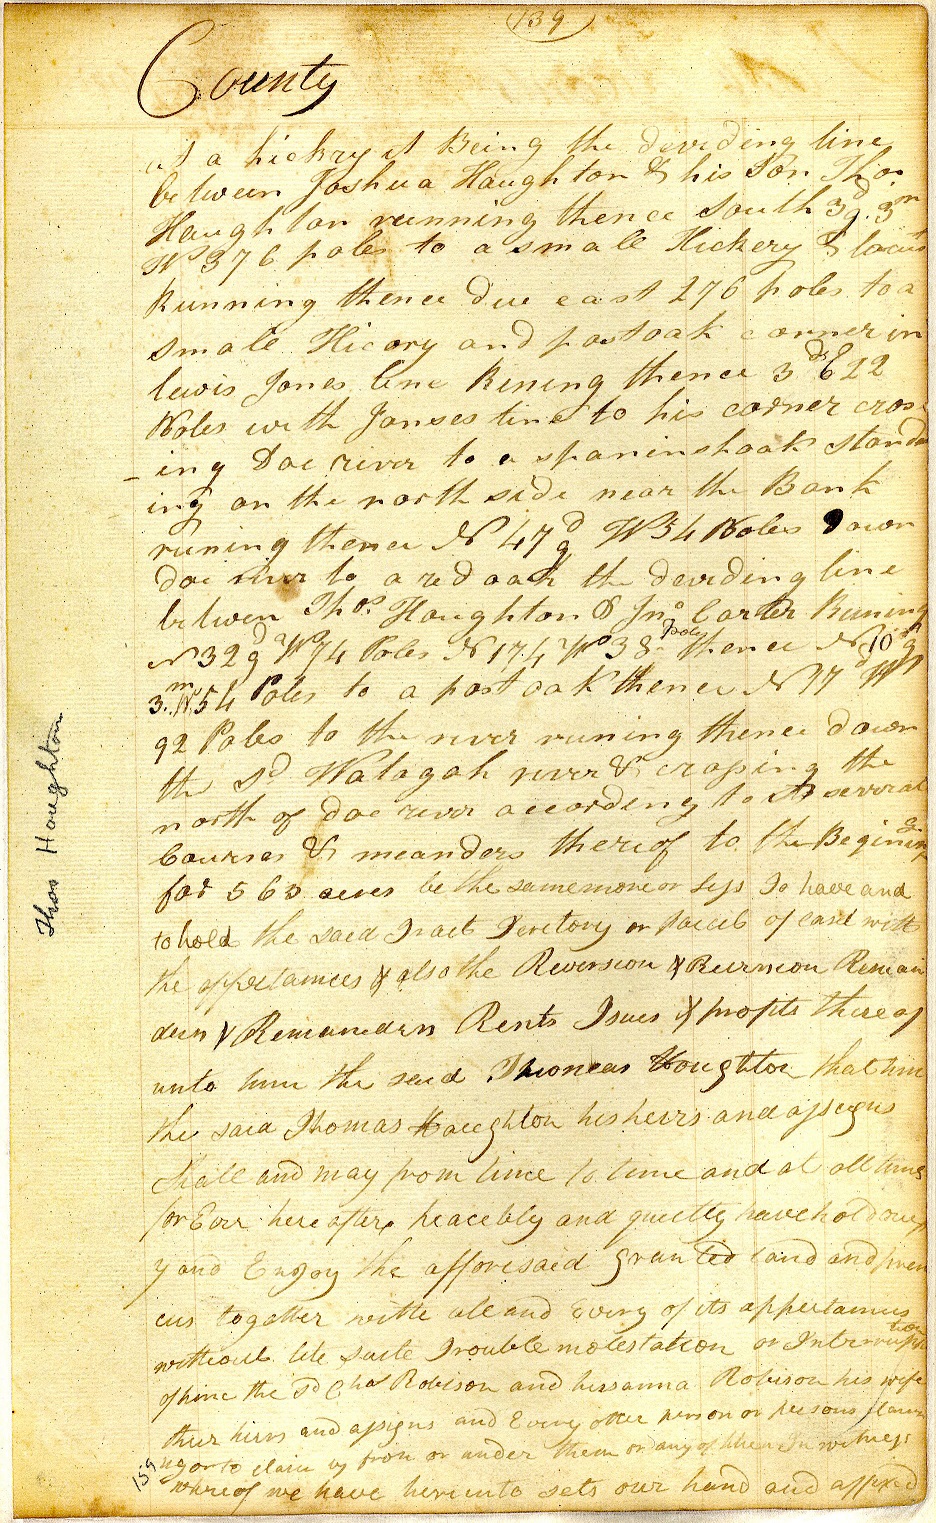 139
County
at a hickry it Being the deviding line
between Joshua Haughton & his Son Thos
Haughton running thence South 3dg 3m
W 376 poles to a small Hickery & locus
Running thence due east 276 poles to a
small Hicory and postoak corner in
lewis Jones line Runing thence 3d E 22
Poles with Jonses line to his corner cros
-ing Doe river to a spaninshoak Stand
ing on the north side near the Bank
runing thence N 47dg W 34 Poles Down
doe river to a red oak the deviding line
between Thos Haughton & Jno Carter Runing
N 32dg W 74 Poles N 174 Wo 38 poles thence N 10dg
3m W 54 Poles to a post oak thence N 77d W
92 Poles to the river runing thence down
the Sd Watagah river & crossing the
north of doe river according to its several
Courses & meanders thereof to the Begining
for 563 acres be the same more or less To have and
to hold the said Tract Teretory or parcel of land with
the appertainces & also the Reversion & Reversion Remain
ders & Remainders Rents Isues & profits thereof
unto him the said Thomas Houghton that him
the said Thomas Haughton his heirs and assigns
Shall and may from time to time and at all times
for Ever hereafter peacebly and quietly have hold ocup
y and Enjoy the afforesaid granted land and prem
ces together with all and Every of its appertainces
without let suite Trouble molestation or Interruption
of him the Sd Chas Robison and Sussanna Robison his wife
their hiers and assigns and Every other person or persons claim
ing or to claim by from or under them or any of them In witness
whereof we have hereunto sets our hand and affixed
Thos Haughton
159